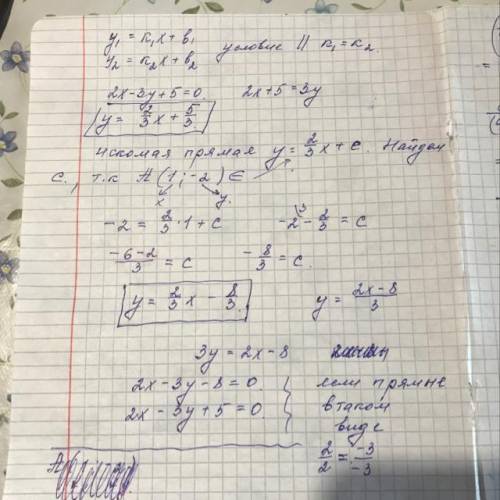 y₁ = k₁x + b₁
y₂ = k₂x + b₂ условие || k₁ = k₂.
2x-3y+5=0. 2x+5=3y
y = 2/3 x + 5/3.
Искомая прямая y = 2/3 x + c. Найдем
c., т.к A(1; -2) ∈
x y.
-2 = 2/3 · 1 + c -2 - 2/3 = c
(-6-2)/3 = c -8/3 = c.
y = 2/3 x - 8/3. y = (2x-8)/3
3y = 2x - 8
2x - 3y - 8 = 0. если прямые
2x - 3y + 5 = 0. в таком
виде
2/2 = -3/-3